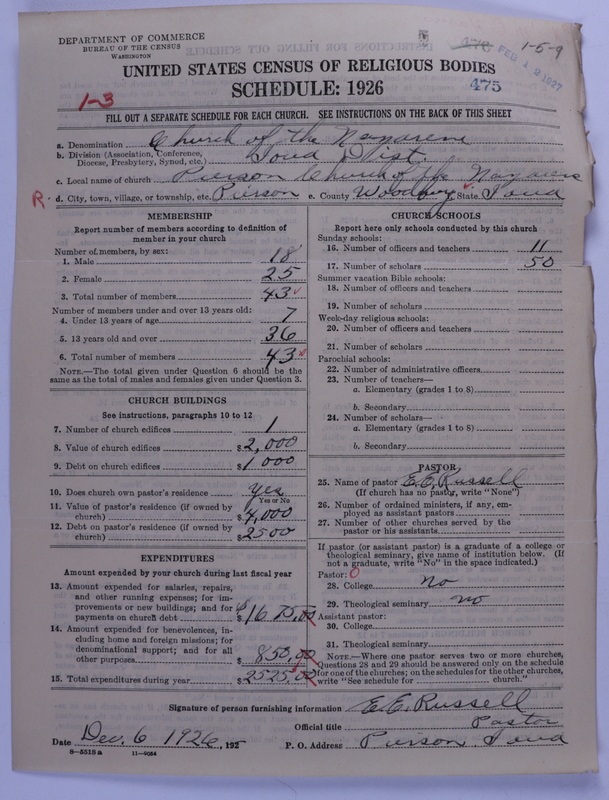 DEPARTMENT OF COMMERCE
BUREAU OF THE CENSUS
WASHINGTON
476
1-5-9
FEB 12 1927
UNITED STATES CENSUS OF RELIGIOUS BODIES
SCHEDULE: 1926
475
1-3
FILL OUT A SEPARATE SCHEDULE FOR EACH CHURCH. SEE INSTRUCTIONS ON THE BACK OF THIS SHEET
a. Denomination Church of the Nazarene
b. Division (Association, Conference, Diocese, Presbytery, Synod, etc.) Iowa Dist.
c. Local name of church Pierson Church of the Nazarene
R. d. City, town, village, or township, etc. Pierson e. County Woodbury f. State Iowa
MEMBERSHIP
Report number of members according to definition of
member in your church
Number of members, by sex:
1. Male 18
2. Female 25
3. Total number of members 43
Number of members under and over 13 years old:
4. Under 13 years of age 7
5. 13 years old and over 36
6. Total number of members 43
NOTE.—The total given under Question 6 should be
same as the total of males and females given under Question 3.
CHURCH BUILDINGS
See instructions, paragraphs 10 to 12
7. Number of church edifices 1
8. Value of church edifices $2,000
9. Debt on church edifices $1000
10. Does church own pastor's residence Yes
Yes or No
11. Value of pastor's residence (if owned by
church) $4,000
12. Debt on pastor's residence (if owned by
church) $2500
EXPENDITURES
Amount expended by your church during last fiscal year
13. Amount expended for salaries, repairs,
and other running expenses; for im-
provements or new buildings; and for
payments on church debt $1675.00
14. Amount expended for benevolences, in-
cluding home and foreign missions; for
denominational support; and for all
other purposes $850.00
15. Total expenditures during year $2525.00
CHURCH SCHOOLS
Report here only schools conducted by this church
Sunday schools:
16. Number of officers and teachers 11
17. Number of scholars 50
Summer vacation Bible schools:
18. Number of officers and teachers
19. Number of scholars
Week-day religious schools:
20. Number of officers and teachers
21. Number of scholars
Parochial schools:
22. Number of administrative officers
23. Number of teachers—
a. Elementary (grades 1 to 8)
b. Secondary
24. Number of scholars—
a. Elementary (grades 1 to 8)
b. Secondary
PASTOR
25. Name of pastor E.E. Russell
(If church has no pastor, write "None")
26. Number of ordained ministers, if any, em-
ployed as assistant pastors
27. Number of other churches served by the
pastor or his assistants
If pastor (or assistant pastor) is a graduate of a college or
theological seminary, give name of institution below. (If
not a graduate, write "No" in the space indicated.)
Pastor: 0
28. College no
29. Theological seminary no
Assistant pastor:
30. College
31. Theological seminary
NOTE.—Where one pastor serves two or more churches,
Questions 28 and 29 should be answered only on the schedule
for one of the churches; on the schedules for the other churches,
write "See schedule for church."
Signature of person furnishing information E.E. Russell
Official title Pastor
Date Dec. 6 1926, 192 P. O. Address Pierson Iowa
8-5518 a 11-9264